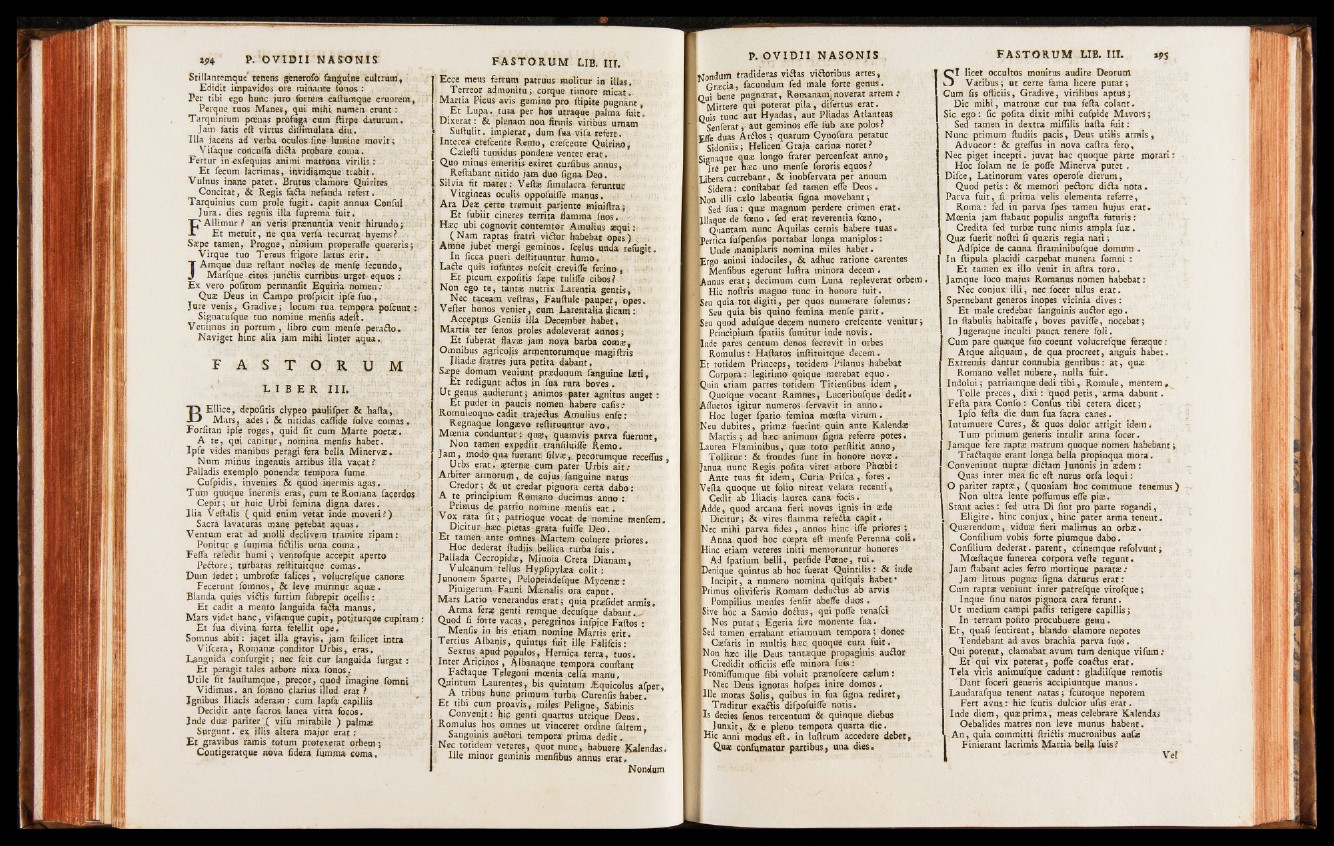 294 P. OVIDII NASONIS
Stillantemque tenens generoſo ſanguine cultrum,
Edidit impavidos ore minante ſonos:
Per tibi ego hunc juro fortem caſtumque cruorem,
Perque tuos Manes, qui mihi numen erunt:
Tarquinium pœnas profuga cum ſtirpe daturum.
Jam ſatis eſt virtus diſſimulata diu.
Illa jacens ad verba oculos ſine lumine movit;
Viſaque concuſſa dicta probare coma.
Fertur in exſequias animi matrona virilis:
Et ſecum lacrimas, invidiamque trahit.
Vulnus inane patet. Brutus clamore Quirites
Concitat, & Regis facta nefanda refert.
Tarquinius cum prole fugit. capit annua Conſul
Jura. dies regnis illa ſuprema fuit.
FAllimur? an veris prænuntia venit hirundo;
Et metuit, ne qua verſa recurrat hyems?
Sæpe tamen, Progne, nimium properaſſe quereris;
Virque tuo Tereus frigore lætus erit.
JAmque duæ reſtant noctes de menſe ſecundo,
Marſque citos junctis curribus urget equos:
Ex vero poſitum permanſit Equiria nomen:
Quæ Deus in Campo proſpicit ipſe ſuo,
Jure venis, Gradive; locum tua tempora poſcunt:
Signatuſque tuo nomine menſis adeſt.
Venimus in portum, libro cum menſe peracto.
Naviget hinc alia jam mihi linter aqua.
FASTORUM
LIBER III.
BEllice, depoſitis clypeo pauliſper & haſta,
Mars, ades; & nitidas caſſide ſolve comas.
Forſitan ipſe roges, quid ſit cum Marte poetæ.
A te, qui canitur, nomina menſis habet.
Ipſe vides manibus peragi fera bella Minervæ.
Num minus ingenuis artibus illa vacat?
Palladis exemplo ponendæ tempora ſume
Cuſpidis. invenies & quod inermis agas.
Tum quoque inermis eras, cum te Romana ſacerdos
Cepit; ut huic Urbi ſemina digna dares.
Ilia Veſtalis (quid enim vetat inde moveri?)
Sacra lavaturas mane petebat aquas.
Ventum erat ad molli declivem tramite ripam:
Ponitur e ſumma fictilis urna coma,
Feſſa reſedit humi; ventoſque accepit aperto
Pectore; turbatas reſtituitque comas.
Dum ſedet; umbroſæ ſalices, volucreſque canoræ
Fecerunt ſomnos, & leve murmur aquæ.
Blanda quies victis furtim ſubrepit ocellis:
Et cadit a mento languida facta manus.
Mars videt hanc, viſamque cupit, potiturque cupitam:
Et ſua divina furta fefellit ope.
Somnus abit: jacet illa gravis, jam ſcilicet intra
Viſcera, Romanæ conditor Urbis, eras.
Languida conſurgit; nec ſcit cur languida ſurgat:
Et peragit tales arbore nixa ſonos:
Utile ſit fauſtumque, precor, quod imagine ſomni
Vidimus. an ſomno clarius illud erat?
Ignibus Iliacis aderam: cum lapſa capillis
Decidit ante ſacros lanea vitta focos.
Inde duæ pariter (viſu mirabile) palmæ
Surgunt. ex illis altera major erat:
Et gravibus ramis totum protexerat orbem;
Contigeratque nova ſidera ſumma coma.
FASTORUM LIB. III.
Ecce meus ferrum patruus molitur in illas.
Terreor admonitu; corque timore micat.
Martia Picus avis gemino pro ſtipite pugnant,
Et Lupa. tuta per hos utraque palma fuit.
Dixerat: & plenam non firmis viribus urnam
Suſtulit. implerat, dum ſua viſa refert.
Interea creſcente Remo, creſcente Quirino,
Cæleſti tumidus pondere venter erat.
Quo minus emeritis exiret curſibus annus,
Reſtabant nitido jam duo ſigna Deo.
Silvia fit mater: Veſtæ ſimulacra feruntur
Virgineas oculis oppoſuiſſe manus.
Ara Deæ certe tremuit pariente miniſtra;
Et ſubiit cineres territa flamma ſuos.
Hæc ubi cognovit contemtor Amulius æqui:
(Nam raptas fratri victor habebat opes)
Amne jubet mergi geminos. ſcelus unda refugit.
In ſicca pueri deſtituuntur humo.
Lacte quis infantes neſcit creviſſe ferino,
Et picum expoſitis ſæpe tuliſſe cibos?
Non ego te, tantæ nutrix Larentia gentis,
Nec taceam veſtras, Fauſtule pauper, opes.
Veſter honos veniet, cum Larentalia dicam:
Acceptus Geniis illa December habet.
Martia ter ſenos proles adoleverat annos;
Et ſuberat flavæ jam nova barba comæ.
Omnibus agricolis armentorumque magiſtris
Iliadæ fratres jura petita dabant.
Sæpe domum veniunt prædonum ſanguine læti,
Et redigunt actos in ſua rura boves.
Ut genus audierunt; animos pater agnitus auget:
Et pudet in paucis nomen habere caſis:
Romuleoque cadit trajectus Amulius enſe:
Regnaque longævo reſtituuntur avo.
Mœnia conduntur: quæ, quamvis parva fuerunt,
Non tamen expediit tranſiluiſſe Remo.
Jam, modo qua fuerant ſilvæ, pecorumque receſſus,
Urbs erat. æternæ cum pater Urbis ait:
Arbiter armorum, de cujus ſanguine natus
Credor; & ut credar pignora certa dabo:
A te principium Romano ducimus anno:
Primus de patrio nomine menſis eat.
Vox rata fit; patrioque vocat de nomine menſem.
Dicitur hæc pietas grata fuiſſe Deo.
Et tamen ante omnes Martem coluere priores.
Hoc dederat ſtudiis bellica turba ſuis.
Pallada Cecropidæ, Minoia Creta Dianam,
Vulcanum tellus Hypſipylæa colit:
Junonem Sparte, Pelopeiadeſque Mycenæ:
Pinigerum Fauni Mænalis ora caput.
Mars Latio venerandus erat; quia præſidet armis.
Arma feræ genti remque decuſque dabant.
Quod ſi forte vacas, peregrinos inſpice Faſtos:
Menſis in his etiam nomine Martis erit.
Tertius Albanis, quintus fuit ille Faliſcis:
Sextus apud populos, Hernica terra, tuos.
Inter Aricinos, Albanaque tempora conſtant
Factaque Telegoni mœnia celſa manu.
Quintum Laurentes, bis quintum Æquicolus aſper,
A tribus hunc primum turba Curenſis habet.
Et tibi cum proavis, miles Peligne, Sabinis
Convenit: hic genti quartus utrique Deus.
Romulus hos omnes ut vinceret ordine ſaltem,
Sanguinis auctori tempora prima dedit.
Nec totidem veteres, quot nunc, habuere Kalendas.
Ille minor geminis menſibus annus erat.
Nondum
P. OVIDII NASONIS
Nondum tradideras victas victoribus artes,
Græcia, facundum ſed male forte genus.
Qui bene pugnarat, Romanam noverat artem:
Mittere qui poterat pila, diſertus erat.
Quis tunc aut Hyadas, aut Pliadas Atlanteas
Senſerat, aut geminos eſſe ſub axe polos?
Eſſe duas Arctos; quarum Cynoſura petatur
Sidoniis; Helicen Graja carina notet?
Signaque quæ longo frater percenſeat anno,
Ire per hæc uno menſe ſororis equos?
Libera currebant, & inobſervata per annum
Sidera: conſtabat ſed tamen eſſe Deos.
Non illi cælo labentia ſigna movebant;
Sed ſua: quæ magnum perdere crimen erat.
Illaque de fœno. ſed erat reverentia fœno,
Quantam nunc Aquilas cernis habere tuas.
Pertica ſuſpenſos portabat longa maniplos:
Unde maniplaris nomina miles habet.
Ergo animi indociles, & adhuc ratione carentes
Menſibus egerunt luſtra minora decem.
Annus erat; decimum cum Luna repleverat orbem.
Hic noſtris magno tunc in honore fuit.
Seu quia tot digiti, per quos numerare ſolemus:
Seu quia bis quino femina menſe parit.
Seu quod aduſque decem numero creſcente venitur;
Principium ſpatiis ſumitur inde novis.
Inde pares centum denos ſecrevit in orbes
Romulus: Haſtatos inſtituitque decem.
Et totidem Princeps, totidem Pilanus habebat
Corpora: legitimo quique merebat equo.
Quin etiam partes totidem Titienſibus idem,
Quoſque vocant Ramnes, Luceribuſque dedit.
Aſſuetos igitur numeros ſervavit in anno.
Hoc luget ſpatio femina mœſta virum.
Neu dubites, primæ fuerint quin ante Kalendæ
Martis; ad hæc animum ſigna referre potes.
Laurea Flaminibus, quæ toto perſtitit anno,
Tollitur: & frondes ſunt in honore novæ.
Janua nunc Regis poſita viret arbore Phœbi:
Ante tuas fit idem, Curia Priſca, fores.
Veſta quoque ut folio niteat velata recenti,
Cedit ab Iliacis laurea cana focis.
Adde, quod arcana fieri novus ignis in æde
Dicitur; & vires flamma refecta capit.
Nec mihi parva fides, annos hinc iſſe priores;
Anna quod hoc cœpta eſt menſe Perenna coli.
Hinc etiam veteres initi memorantur honores
Ad ſpatium belli, perfide Pœne, tui.
Denique quintus ab hoc fuerat Quintilis: & inde
Incipit, a numero nomina quiſquis habet.
Primus oliviferis Romam deductus ab arvis
Pompilius menſes ſenſit abeſſe duos.
Sive hoc a Samio doctus, qui poſſe renaſci
Nos putat; Egeria ſive monente ſua.
Sed tamen errabant etiamnum tempora; donec
Cæſaris in multis hæc quoque cura fuit.
Non hæc ille Deus tantæque propaginis auctor
Credidit officiis eſſe minora ſuis:
Promiſſumque ſibi voluit prænoſcere cælum:
Nec Deus ignotas hoſpes inire domos.
Ille moras Solis, quibus in ſua ſigna rediret,
Traditur exactis diſpoſuiſſe notis.
Is decies ſenos tercentum & quinque diebus
Junxit, & e pleno tempora quarta die.
Hic anni modus eſt. in luſtrum accedere debet,
Quæ conſumatur partibus, una dies.
FASTORUM LIB. III. 295
SI licet occultos monitus audire Deorum
Vatibus; ut certe fama licere putat;
Cum ſis officiis, Gradive, virilibus aptus;
Dic mihi, matronæ cur tua feſta colant.
Sic ego: ſic poſita dixit mihi cuſpide Mavors;
Sed tamen in dextra miſſilis haſta fuit:
Nunc primum ſtudiis pacis, Deus utilis armis,
Advocor: & greſſus in nova caſtra fero.
Nec piget incepti. juvat hac quoque parte morari:
Hoc ſolam ne ſe poſſe Minerva putet.
Diſce, Latinorum vates operoſe dierum,
Quod petis: & memori pectore dicta nota.
Parva fuit, ſi prima velis elementa referre,
Roma: ſed in parva ſpes tamen hujus erat.
Mœnia jam ſtabant populis anguſta futuris:
Credita ſed turbæ tunc nimis ampla ſuæ.
Quæ fuerit noſtri ſi quæris regia nati;
Adſpice de canna ſtraminibuſque domum.
In ſtipula placidi carpebat munera ſomni:
Et tamen ex illo venit in aſtra toro.
Jamque loco majus Romanus nomen habebat:
Nec conjux illi, nec ſocer ullus erat.
Spernebant generos inopes vicinia dives:
Et male credebar ſanguinis auctor ego.
In ſtabulis habitaſſe, boves paviſſe, nocebat;
Jugeraque inculti pauca tenere ſoli.
Cum pare quæque ſuo coeunt volucreſque feræque:
Atque aliquam, de qua procreet, anguis habet.
Extremis dantur connubia gentibus: at, quæ
Romano vellet nubere, nulla fuit.
Indolui; patriamque dedi tibi, Romule, mentem.
Tolle preces, dixi: quod petis, arma dabunt.
Feſta para Conſo: Conſus tibi cetera dicet;
Ipſo feſta die dum ſua ſacra canes.
Intumuere Cures, & quos dolor attigit idem.
Tum primum generis intulit arma ſocer.
Jamque fere raptæ matrum quoque nomen habebant,
Tractaque erant longa bella propinqua mora.
Conveniunt nuptæ dictam Junonis in ædem:
Quas inter mea ſic eſt nurus orſa loqui:
O pariter raptæ, (quoniam hoc commune tenemus)
Non ultra lente poſſumus eſſe piæ.
Stant acies: ſed utra Di ſint pro parte rogandi,
Eligite. hinc conjux, hinc pater arma tenent.
Quærendum, viduæ fieri malimus an orbæ.
Conſilium vobis forte piumque dabo.
Conſilium dederat. parent, crinemque reſolvunt;
Mœſtaque funerea corpora veſte tegunt.
Jam ſtabant acies ferro mortique paratæ:
Jam lituus pugnæ ſigna daturus erat:
Cum raptæ veniunt inter patreſque viroſque;
Inque ſinu natos pignora cara ferunt.
Ut medium campi paſſis tetigere capillis;
In terram poſito procubuere genu.
Et, quaſi ſentirent, blando clamore nepotes
Tendebant ad avos brachia parva ſuos.
Qui poterat, clamabat avum tum denique viſum:
Et qui vix poterat, poſſe coactus erat.
Tela viris animuſque cadunt: gladiiſque remotis
Dant ſoceri generis accipiuntque manus.
Laudataſque tenent natas; ſcutoque nepotem
Fert avus: hic ſcutis dulcior uſus erat.
Inde diem, quæ prima, meas celebrare Kalendas
Oebalides matres non leve munus habent.
An, quia committi ſtrictis mucronibus auſæ
Finierant lacrimis Martia bella ſuis?
Vel